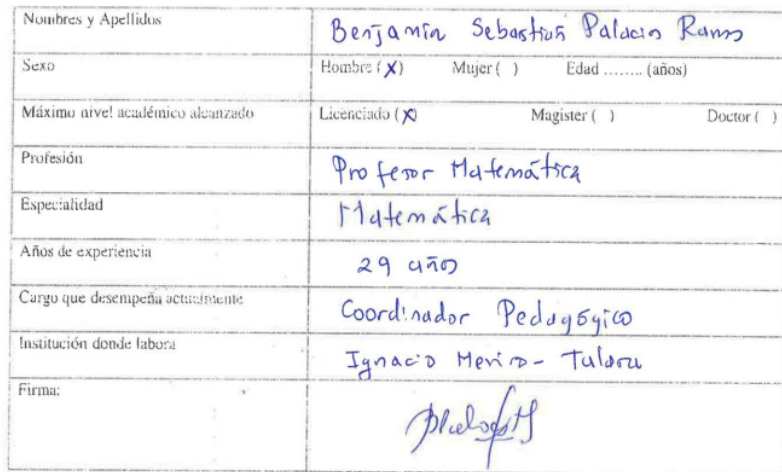 Nombres y Apellidos Benjamín Sebastián Palacios Ramos
Sexo Hombre (X) Mujer ( ) Edad ........ (años)
Máximo nivel académico alcanzado Licenciado (X) Magister ( ) Doctor ( )
Profesión Profesor Matemática
Especialidad Matemática
Años de experiencia 29 años
Cargo que desempeña actualmente Coordinador Pedagógico
Institución donde labora Ignacio Merino - Talara
Firma: